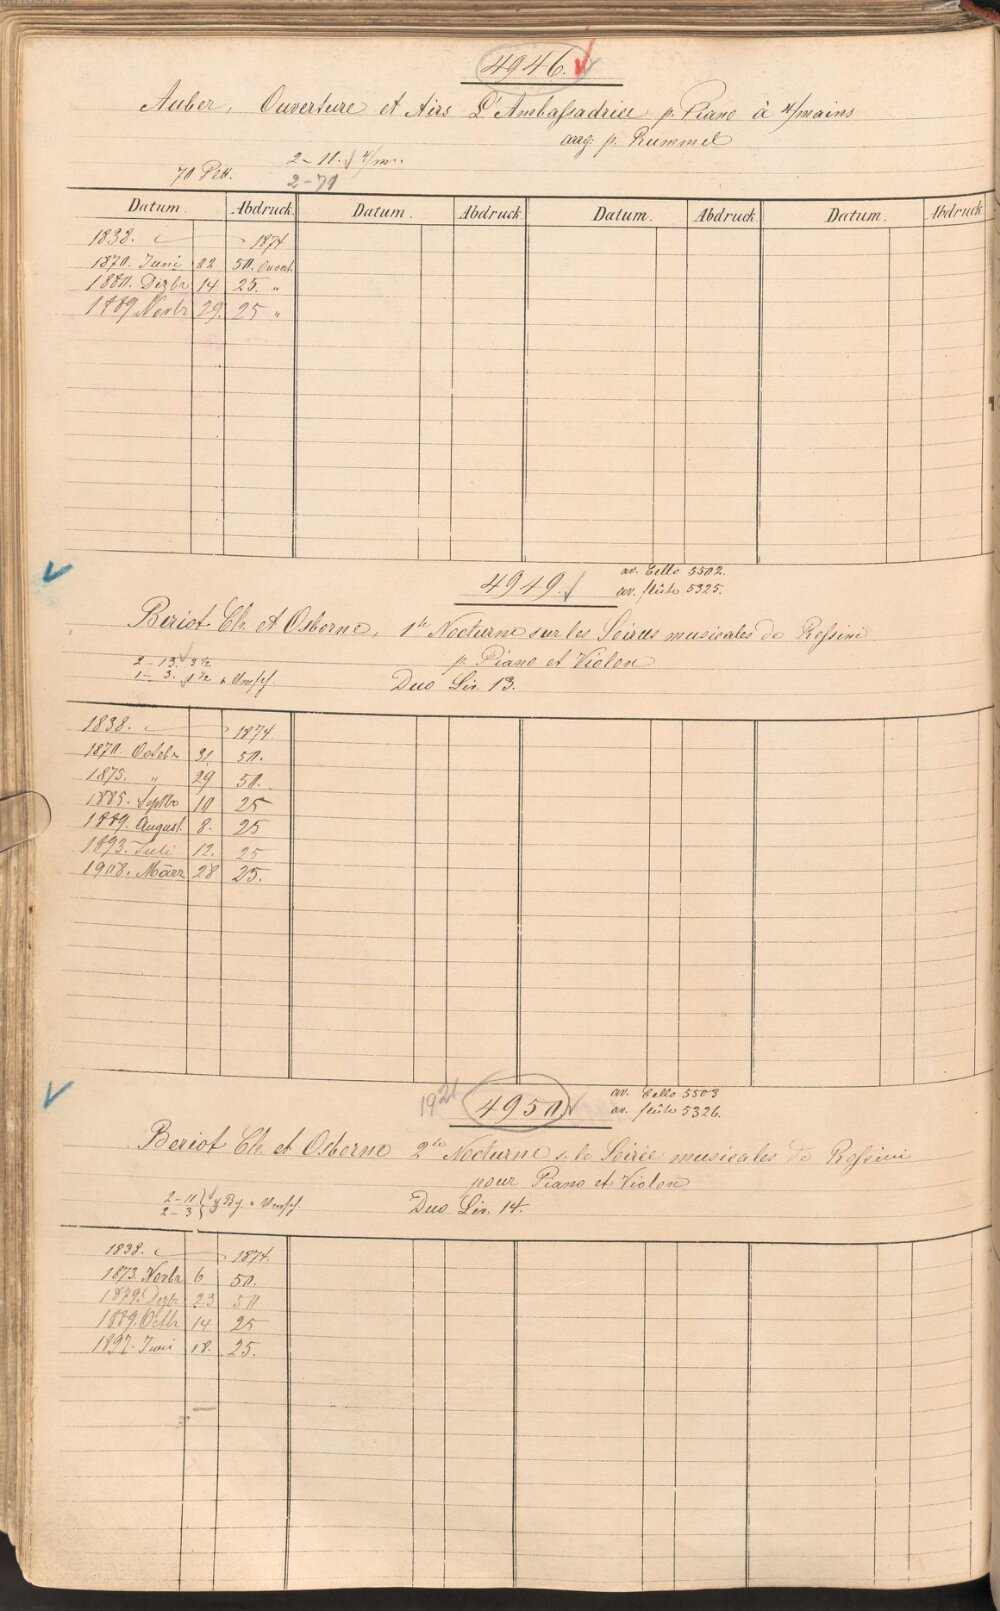 4946.
Auber, Ouverture et Airs L'Ambaſsadrice p. Piano à 4/mains
arrg. p. Rummel
2-11. 4/m.
70 Pltt. 2-70
Datum. Abdruck. Datum. Abdruck. Datum. Abdruck. Datum. Abdruck
1838. 1874
1870. Juni 22 50.
1880. Dezbr 14 25. "
1889. Novbr 29. 25 "
av. Cello 5502.
4949. av. flûte 5325.
Beriot Ch. et Osborne, 1te Nocturne sur les Soirées musicales de Roſsini
2-13. 3½ p. Piano et Violon
1-3. 1½ Umschl. Duo Liv. 13.
1838. 1874
1870. Octobr 31. 50.
1875. " 29 50.
1885. Septbr 10 25
1889. August. 8. 25
1893. Juli 12. 25
1908. März 28 25.
av. Cello 5503
1921 4950 av. flûte 5326.
Beriot Ch. et Osborne 2te Nocturne s. le Soirée musicales de Roſsini
pour Piano et Violon
2-11
2-3 Bg. Umschl. Duo Liv. 14.
1838. 1874.
1873. Novbr 6 50.
1879. Dezbr 23 50
1889. Octbr 14 25
1897. Juni 18. 25.